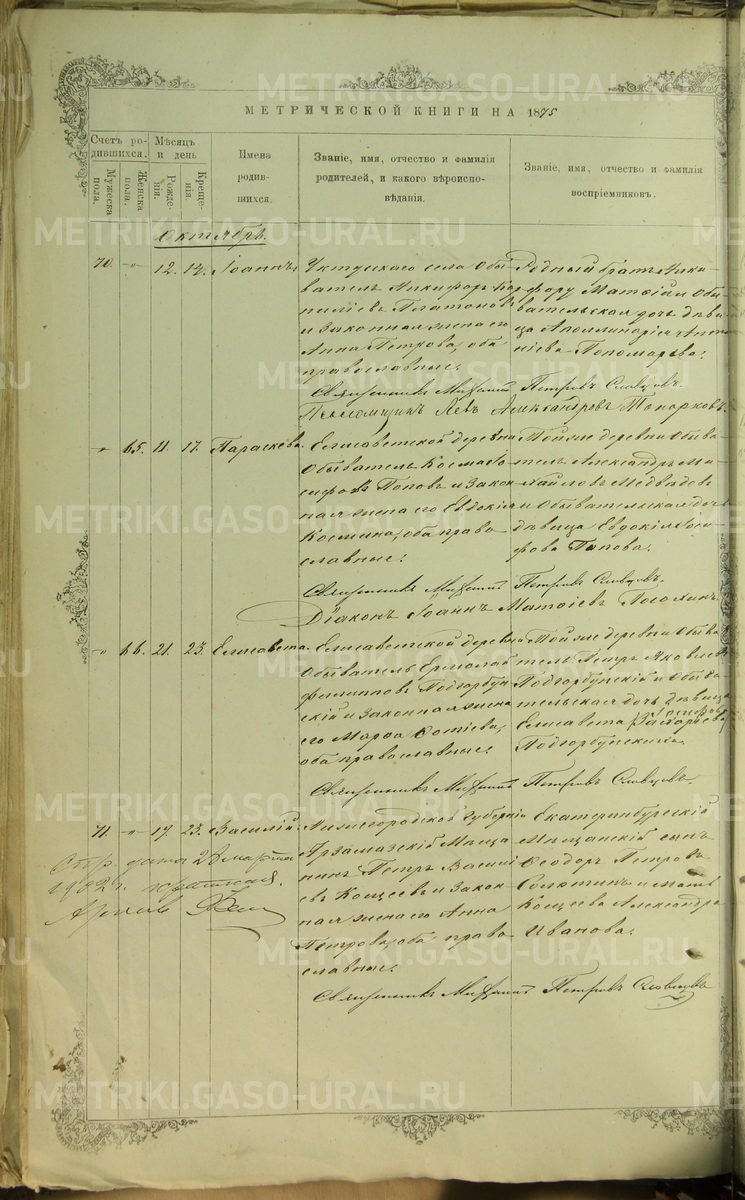 МЕТРИЧЕСКОЙ КНИГИ НА 1875
Счетъ ро-
дившихся.
Мужеска
пола.
Женска
пола.
Мѣсяцъ
и день
Рожде-
нія.
Креще-
нія.
Имена
родив-
шихся.
Званіе, имя, отчество и фамилія
родителей, и какого вѣроиспо-
вѣданія.
Званіе, имя, отчество и фамилія
воспріемниковъ.
Октябрь.
70. " 12. 14. Іоаннъ
Уктусскаго села Обы-
ватель Никифоръ
Платоновъ
и законная жена его
Анна Петрова, оба
православные.
Родный братъ Ники-
фору Матѳій и Обы-
вательская дочь дѣви-
ца Аполлинарія
Пономарева.
Священникъ Михаилъ Петровъ Словцовъ.
Псаломщикъ Левъ Александровъ Топорковъ.
" 65. 11. 17. Параскева.
Елисаветской деревни
Обыватель Косма Іо-
сифовъ Поповъ и закон-
ная жена его Евдокія
Космина, оба право-
славные.
Той же деревни Обыва-
тель Александръ Ми-
хайловъ Медвѣдевъ
и Обывательская дочь
дѣвица Евдокія Іоси-
фова Попова.
Священникъ Михаилъ Петровъ Словцовъ.
Діаконъ Іоаннъ Матѳіевъ
" 66. 21. 23. Елисавета.
Елисаветской деревни
Обыватель Ермолай
Филипповъ Подгорбун-
скій и законная жена
его Марѳа Фотіева,
оба православные.
Той же деревни Обыва-
тель Петръ Яковлевъ
Подгорбунскій и Обыва-
тельская дочь дѣвица
Елисавета
Подгорбунская
Священникъ Михаилъ Петровъ Словцовъ.
71. " 17. 23. Василій.
Нижегородской губерніи
Арзамазскій Мѣща-
нинъ Петръ Василі-
евъ Кощеевъ и закон-
ная жена его Анна
Петрова, оба право-
славные.
Екатеринбургскій
Мѣщанскій сынъ
Ѳеодоръ Петровъ
и мать
Кощеева Александра
Иванова.
дана 28 марта
Священникъ Михаилъ Петровъ Словцовъ
METRIKI.GASO-URAL.RU